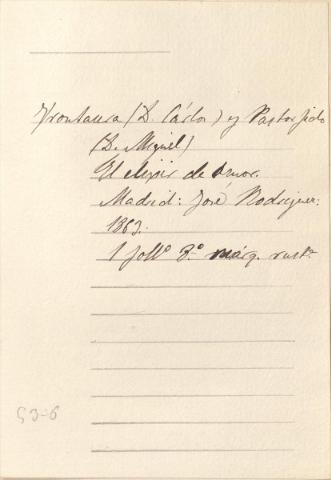 Frontaura (D. Cárlos) y Pastorfido
(D. Miguel)
El elixir de amor.
Madrid: José Rodriguez:
1863.
1 foll.º 8.º marq. rust.ª
53-6